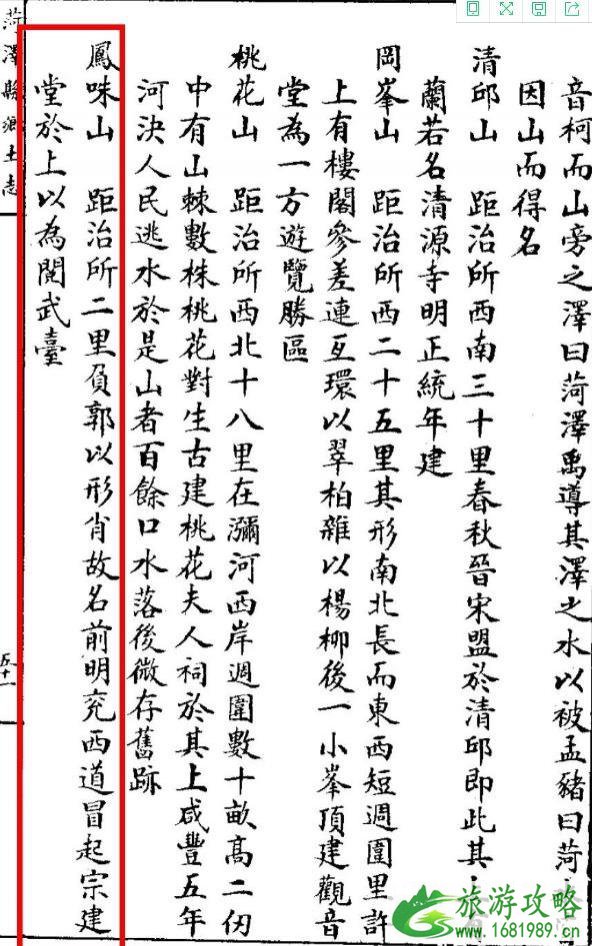 音柯而山旁之澤曰菏澤禹導其澤之水以被孟豬曰菏
因山而得名
清邱山 距治所西南三十里春秋晉宋盟於清邱即此其
蘭若名清源寺明正統年建
岡峯山 距治所西二十五里其形南北長而東西短週圍里許
上有樓閣參差連亙環以翠柏雜以楊柳後一小峯頂建觀音
堂為一方遊覽勝區
桃花山 距治所西北十八里在瀰河西岸週圍數十畝高二仞
中有山棘數株桃花對生古建桃花夫人祠於其上咸豐五年
河決人民逃水於是山者百餘口水落後微存舊跡
鳳味山 距治所二里負郭以形肖故名前明兖西道冒起宗建
堂於上以為閱武臺
菏澤縣鄉土志
五十一
旅游攻略
www.1681989.cn